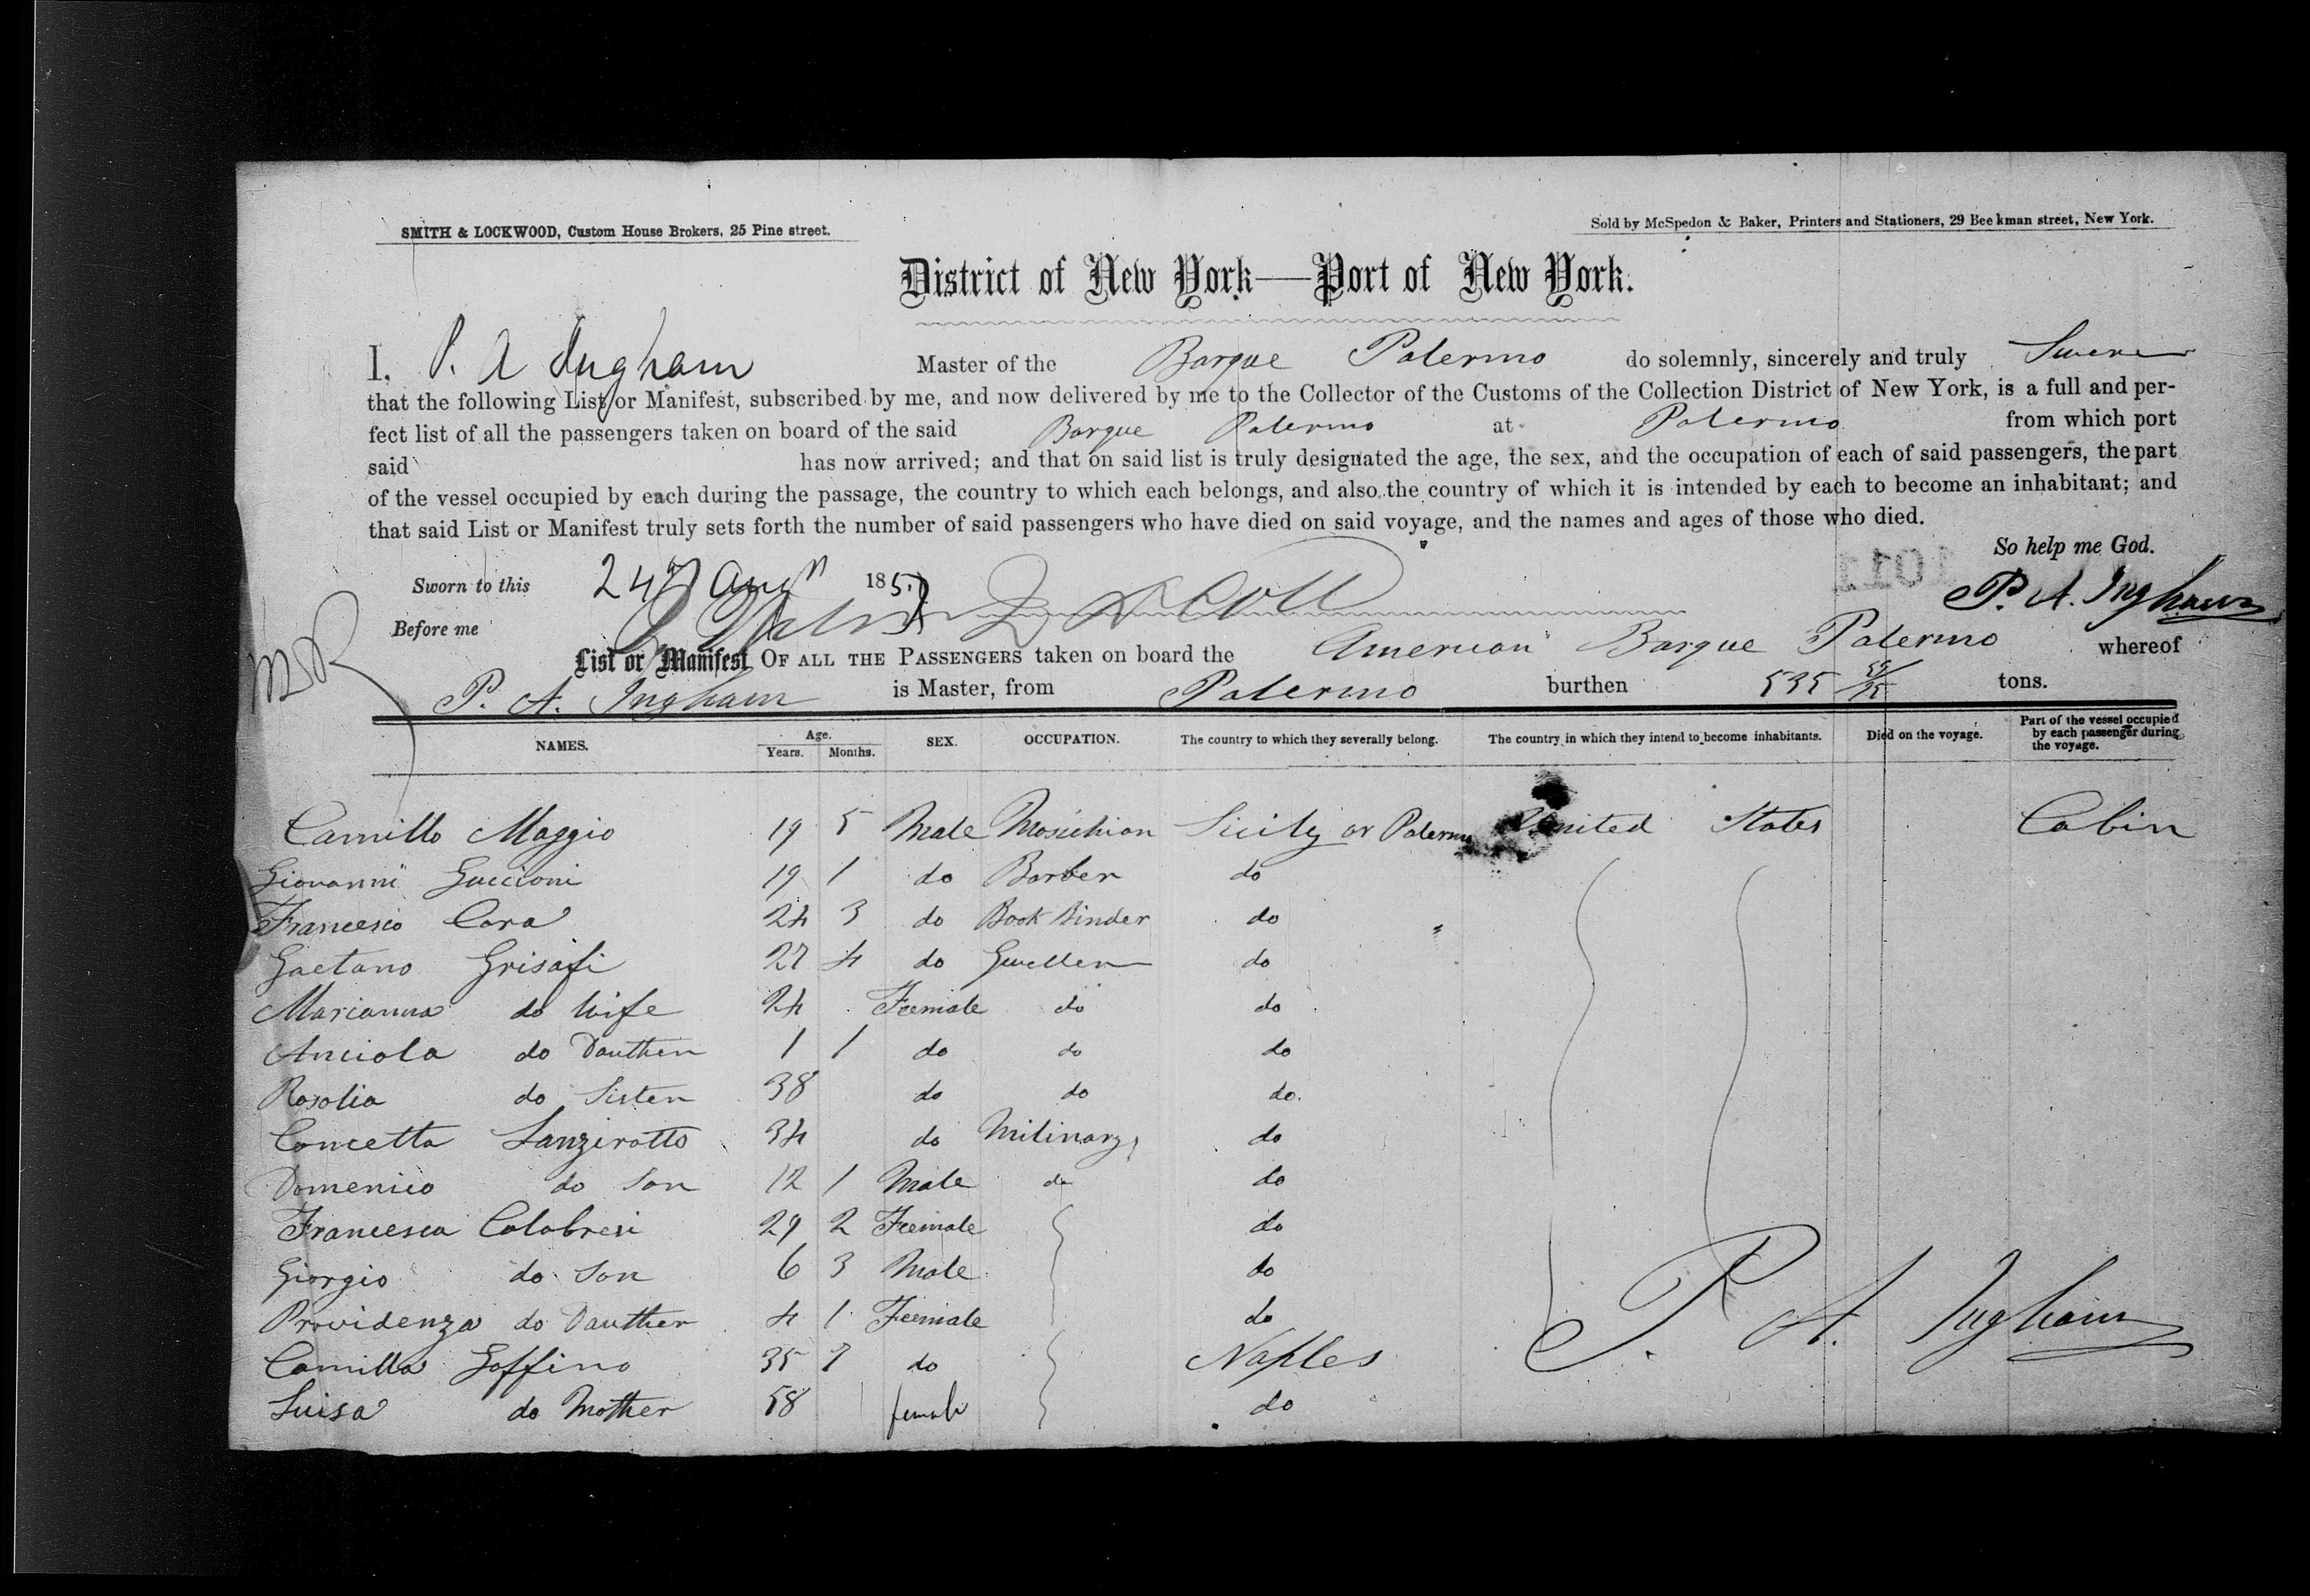 SMITH & LOCKWOOD, Custom House Brokers, 25 Pine street. Sold by McSpedon & Baker, Printers and Stationers, 29 Beekman street, New York.
District of New York—Port of New York.
I, P. A Ingham Master of the Barque Palermo do solemnly, sincerely and truly
that the following List or Manifest, subscribed by me, and now delivered by me to the Collector of the Customs of the Collection District of New York, is a full and per-
fect list of all the passengers taken on board of the said Barque Palermo at Palermo from which port
said has now arrived; and that on said list is truly designated the age, the sex, and the occupation of each of said passengers, the part
of the vessel occupied by each during the passage, the country to which each belongs, and also the country of which it is intended by each to become an inhabitant; and
that said List or Manifest truly sets forth the number of said passengers who have died on said voyage, and the names and ages of those who died.
So help me God.
1011
Sworn to this 24 Augt 185 P. A. Ingham
Before me
List or Manifest OF ALL THE PASSENGERS taken on board the American Barque Palermo whereof
P. A. Ingham is Master, from Palermo burthen 535 tons.
NAMES. Age. Years. Months. SEX. OCCUPATION. The country to which they severally belong. The country in which they intend to become inhabitants. Died on the voyage. Part of the vessel occupied by each passenger during the voyage.
Camillo Maggio 19 5 Male Mosichian Sicily or Palermo United States Cabin
Giovanni Guccioni 19 1 do Barber do
Francesco Cara 24 3 do Book Binder do
Gaetano Grisafi 27 4 do Gweller do
Marianna do Wife 24 Feemale do do
Anciola do Dauther 1 1 do do do
Rosolia do Sister 38 do do do.
Concetta Lanzirotto 34 do Milinary do
Domenico do Son 12 1 Male do do
Francesca Calabresi 29 2 Feemale do
Giorgio do Son 6 3 Male do
Providenza do Dauther 4 1 Feemale do
Camilla Goffino 35 7 do Naples
Luisa do Mother 58 female do
P. A. Ingham